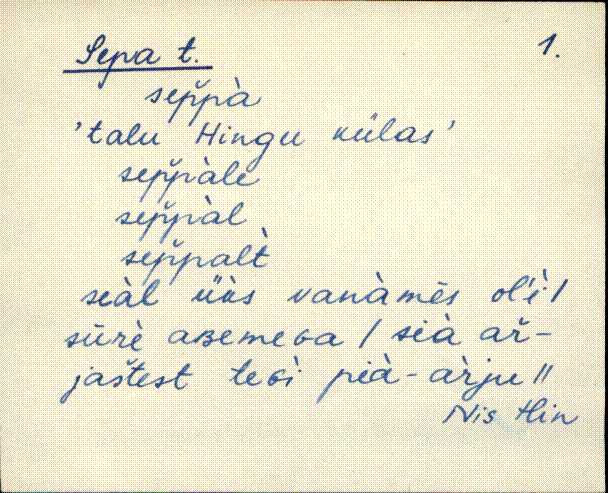 Sepa t. 1.
sep̆pà
'talu Hingu külas'
sep̆pàle
sep̆pàl
sep̆palt̀
seàl üks vanàmēs ol'ì /
sūrè aʙemeɢa / sià ař-
jaštest teɢì pià-àrju //
Nis Hin